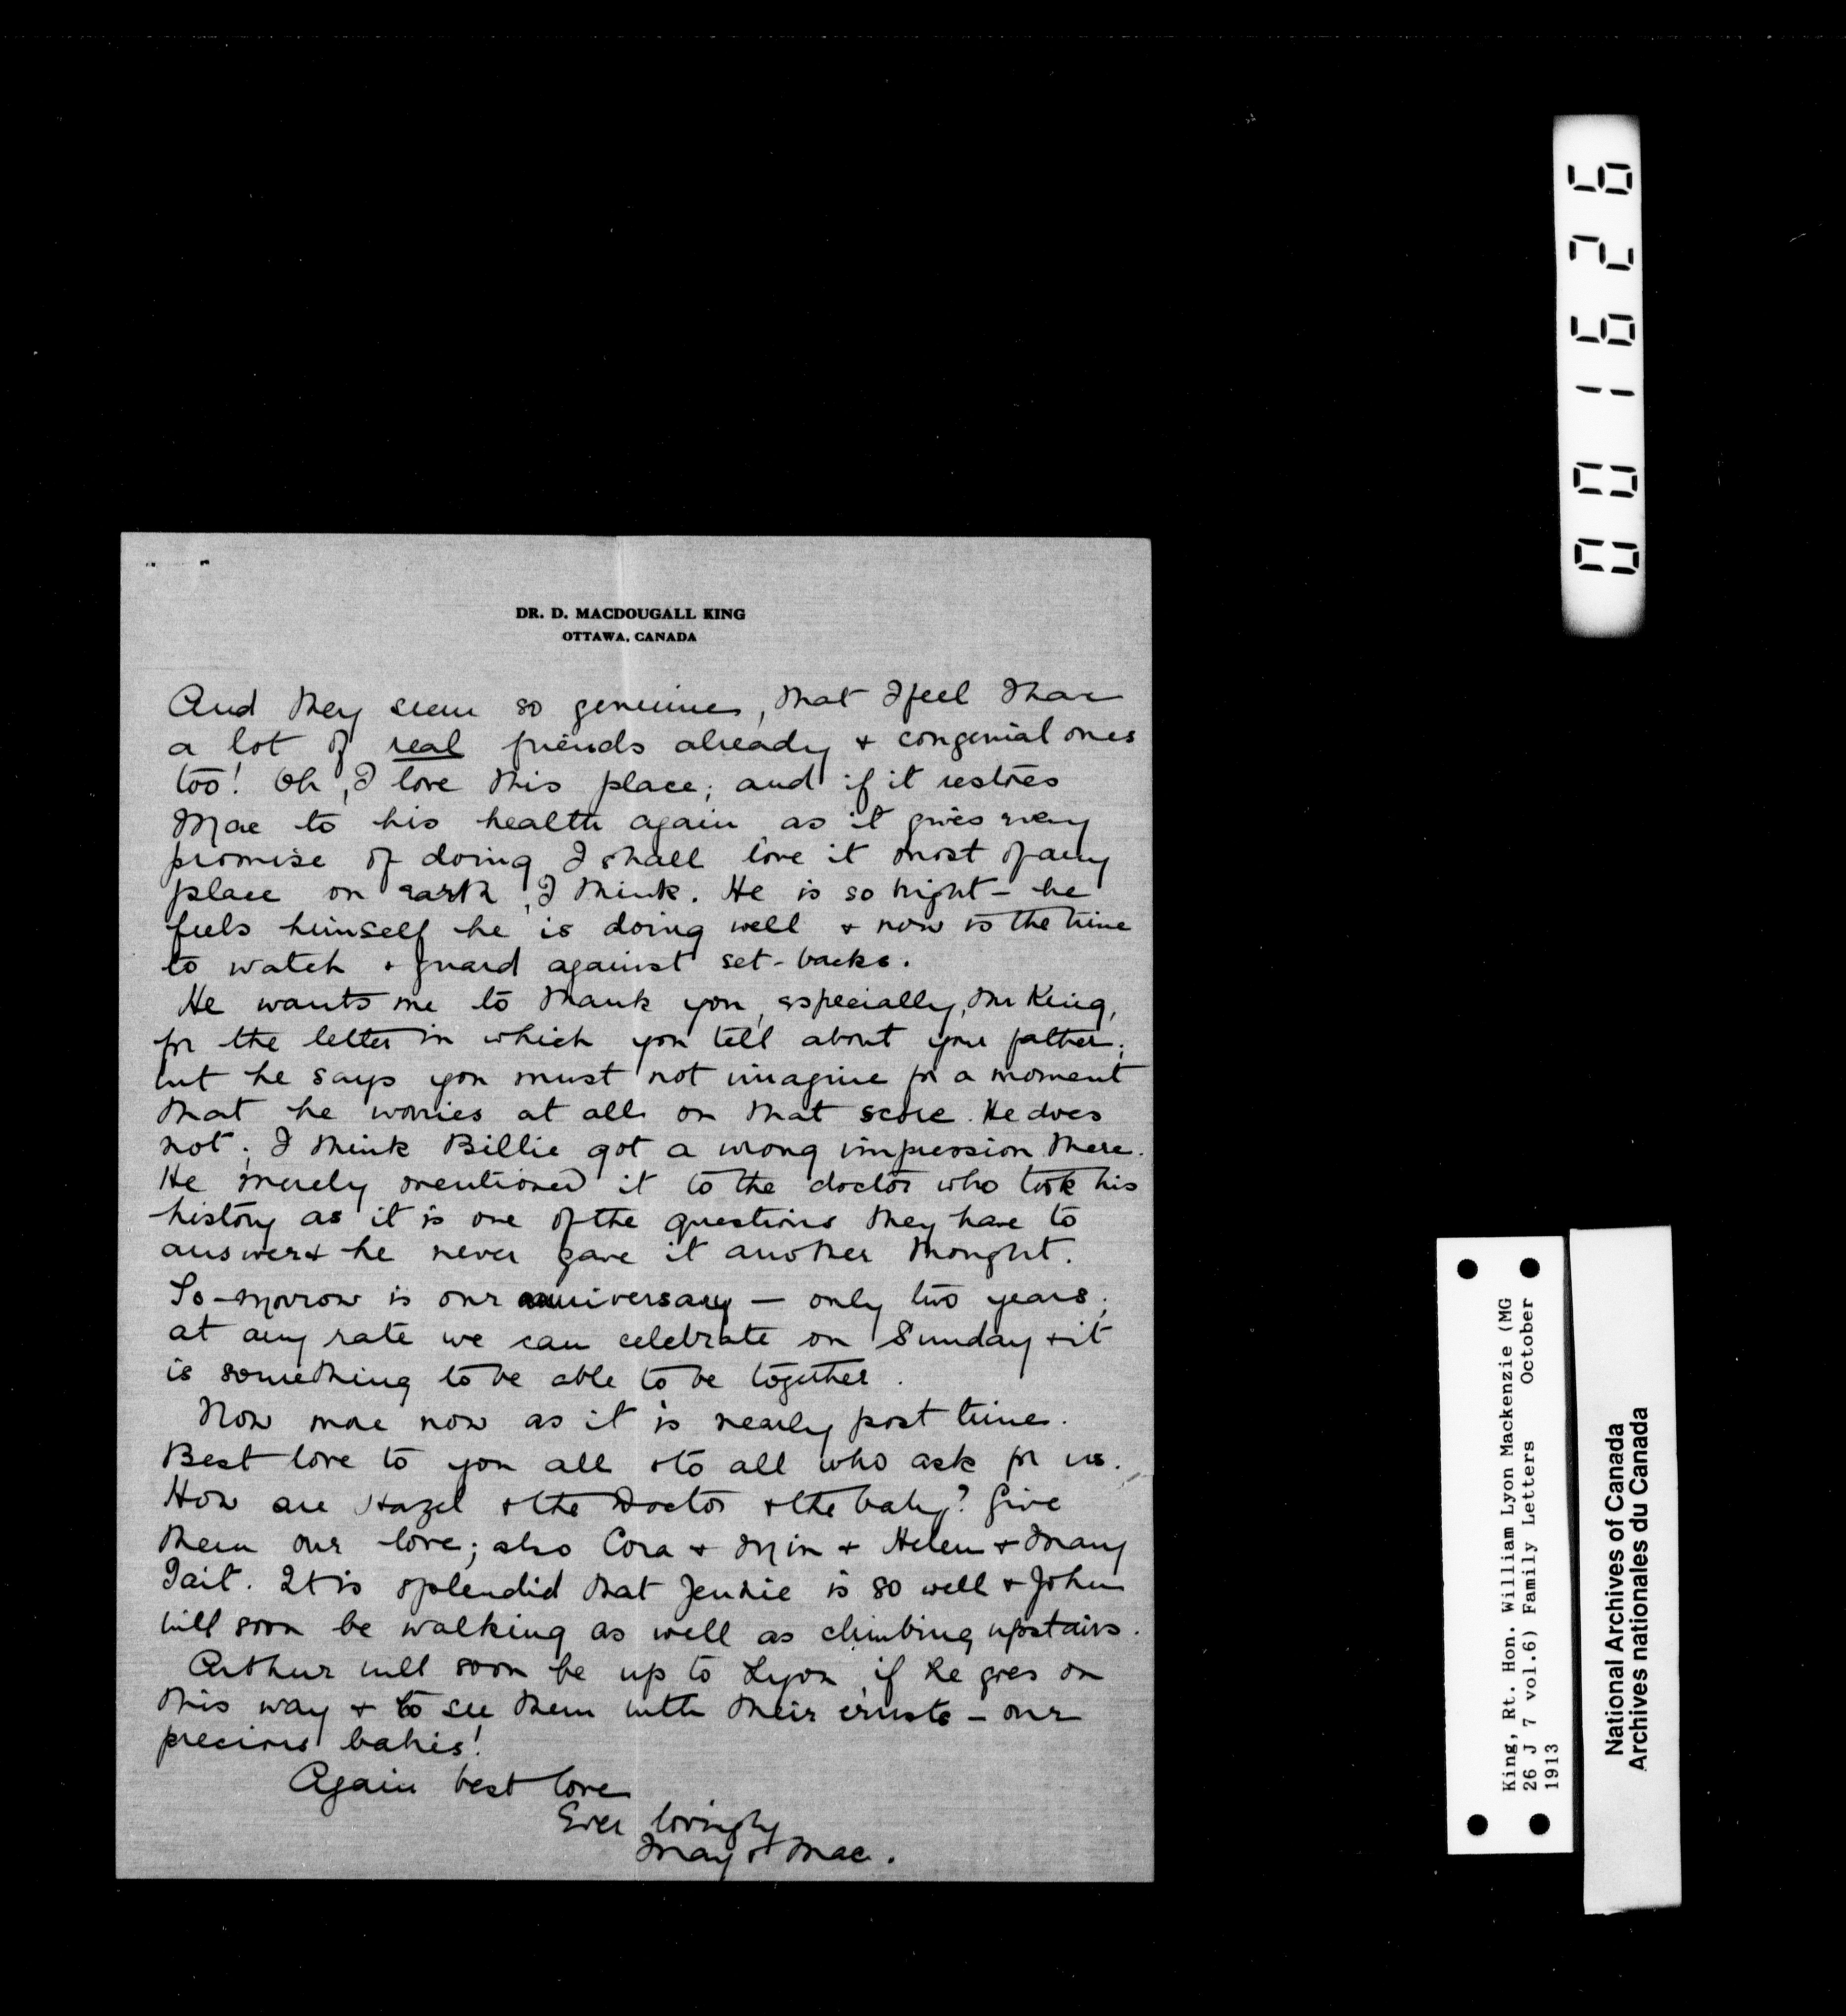 DR. D. MACDOUGALL KING
OTTAWA, CANADA
And they seem so genuine, that I feel I have
a lot of real friends already & congenial ones
too! Oh, I love this place; and if it restores
Mac to his health again, as it gives every
promise of doing I shall love it most of any
place on earth, I think. He is so bright - he
feels himself he is doing well & now is the time
to watch & guard against set-backs.
He wants me to thank you, especially, Mr King,
for the letter in which you tell about your father;
but he says you must not imagine for a moment
that he worries at all on that score. He does
not; I think Billie got a wrong impression there.
He merely mentioned it to the doctor who took his
history as it is one of the questions they have to
answer & he never gave it another thought.
To-morrow is our anniversary - only two years;
at any rate we can celebrate on Sunday & it
is something to be able to be together.
Now more now as it is nearly post time.
Best love to you all & to all who ask for us.
How are Hazel & the Doctor & the baby? Give
them our love; also Cora & Min & Helen & Mary
Tait. It is splendid that Jennie is so well & John
will soon be walking as well as climbing upstairs.
Arthur will soon be up to Lyon, if he goes on
this way & to see them with their crusts - our
precious babies!
Again best love
Ever lovingly
May & Mac.
001626
King, Rt. Hon. William Lyon Mackenzie (MG
26 J 7 vol.6) Family Letters October
1913
National Archives of Canada
Archives nationales du Canada